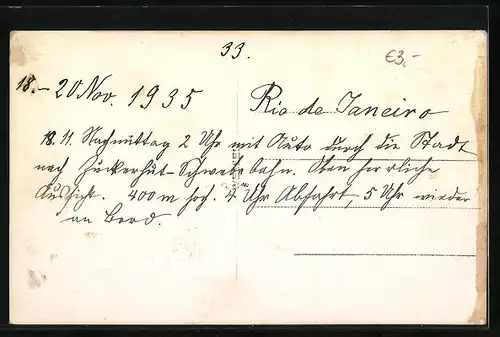 33.
€3,-
18.-20 Nov. 1935
Rio de Janeiro
18. 11. Nachmittag 2 Uhr mit Auto durch die Stadt
nach Zuckerhut-Schwebebahn. Oben herrliche
Aussicht. 400 m hoch. 4 Uhr Abfahrt, 5 Uhr wieder
an Bord.